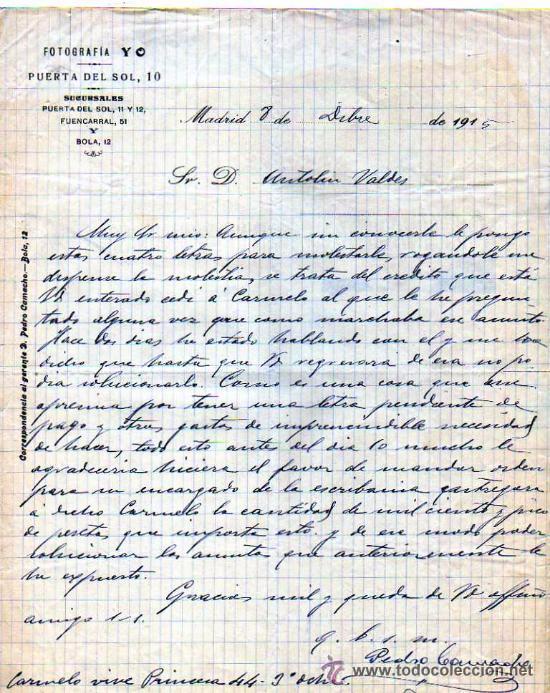 FOTOGRAFÍA YO
PUERTA DEL SOL, 10
SUCURSALES
PUERTA DEL SOL, 11 Y 12,
FUENCARRAL, 51
Y
BOLA, 12
Madrid 8 de Dcbre de 1915
Sr. D. Antolin Valdes
Muy Sr mio: Aunque sin conocerle le pongo
estas cuatro letras para molestarle, rogandole me
dispense la molestia, se trata del credito que está
Vd enterado cedi a Carmelo al que le he pregun
tado alguna vez que como marchaba ese asunto
Hace dos dias he estado hablando con el y me ha
dicho que hasta que Vd regresara de esa no po
dia solucionarlo. Como es una cosa que me
apremia por tener una letra pendiente de
pago y otros gastos de imprescindible necesidad
de hacer, todo esto antes del dia 10 mucho le
agradeceria hiciera el favor de mandar orden
para su encargado de la escribania entregara
a dicho Carmelo la cantidad de mil ciento y pico
de pesetas que importa esto y de ese modo poder
solucionar los asuntos que anteriormente le
he expuesto.
Gracias mil y queda de Vd affmo
amigo s.s.
q. b. s. m.
Pedro Camacho
Carmelo vive Princesa 44-3º dcha
Correspondencia al gerente D. Pedro Camacho.—Bola, 12
todocoleccion.net